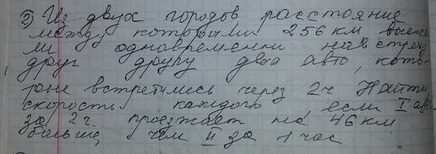 ③ Из двух городов расстояние
между которыми 256 км выеха
ли одновременно навстречу
друг другу два авто, кото
рые встретились через 2ч Найти
скорость каждого, если I авт
за 2ч. проезжает на 46 км
больше, чем II за 1 час